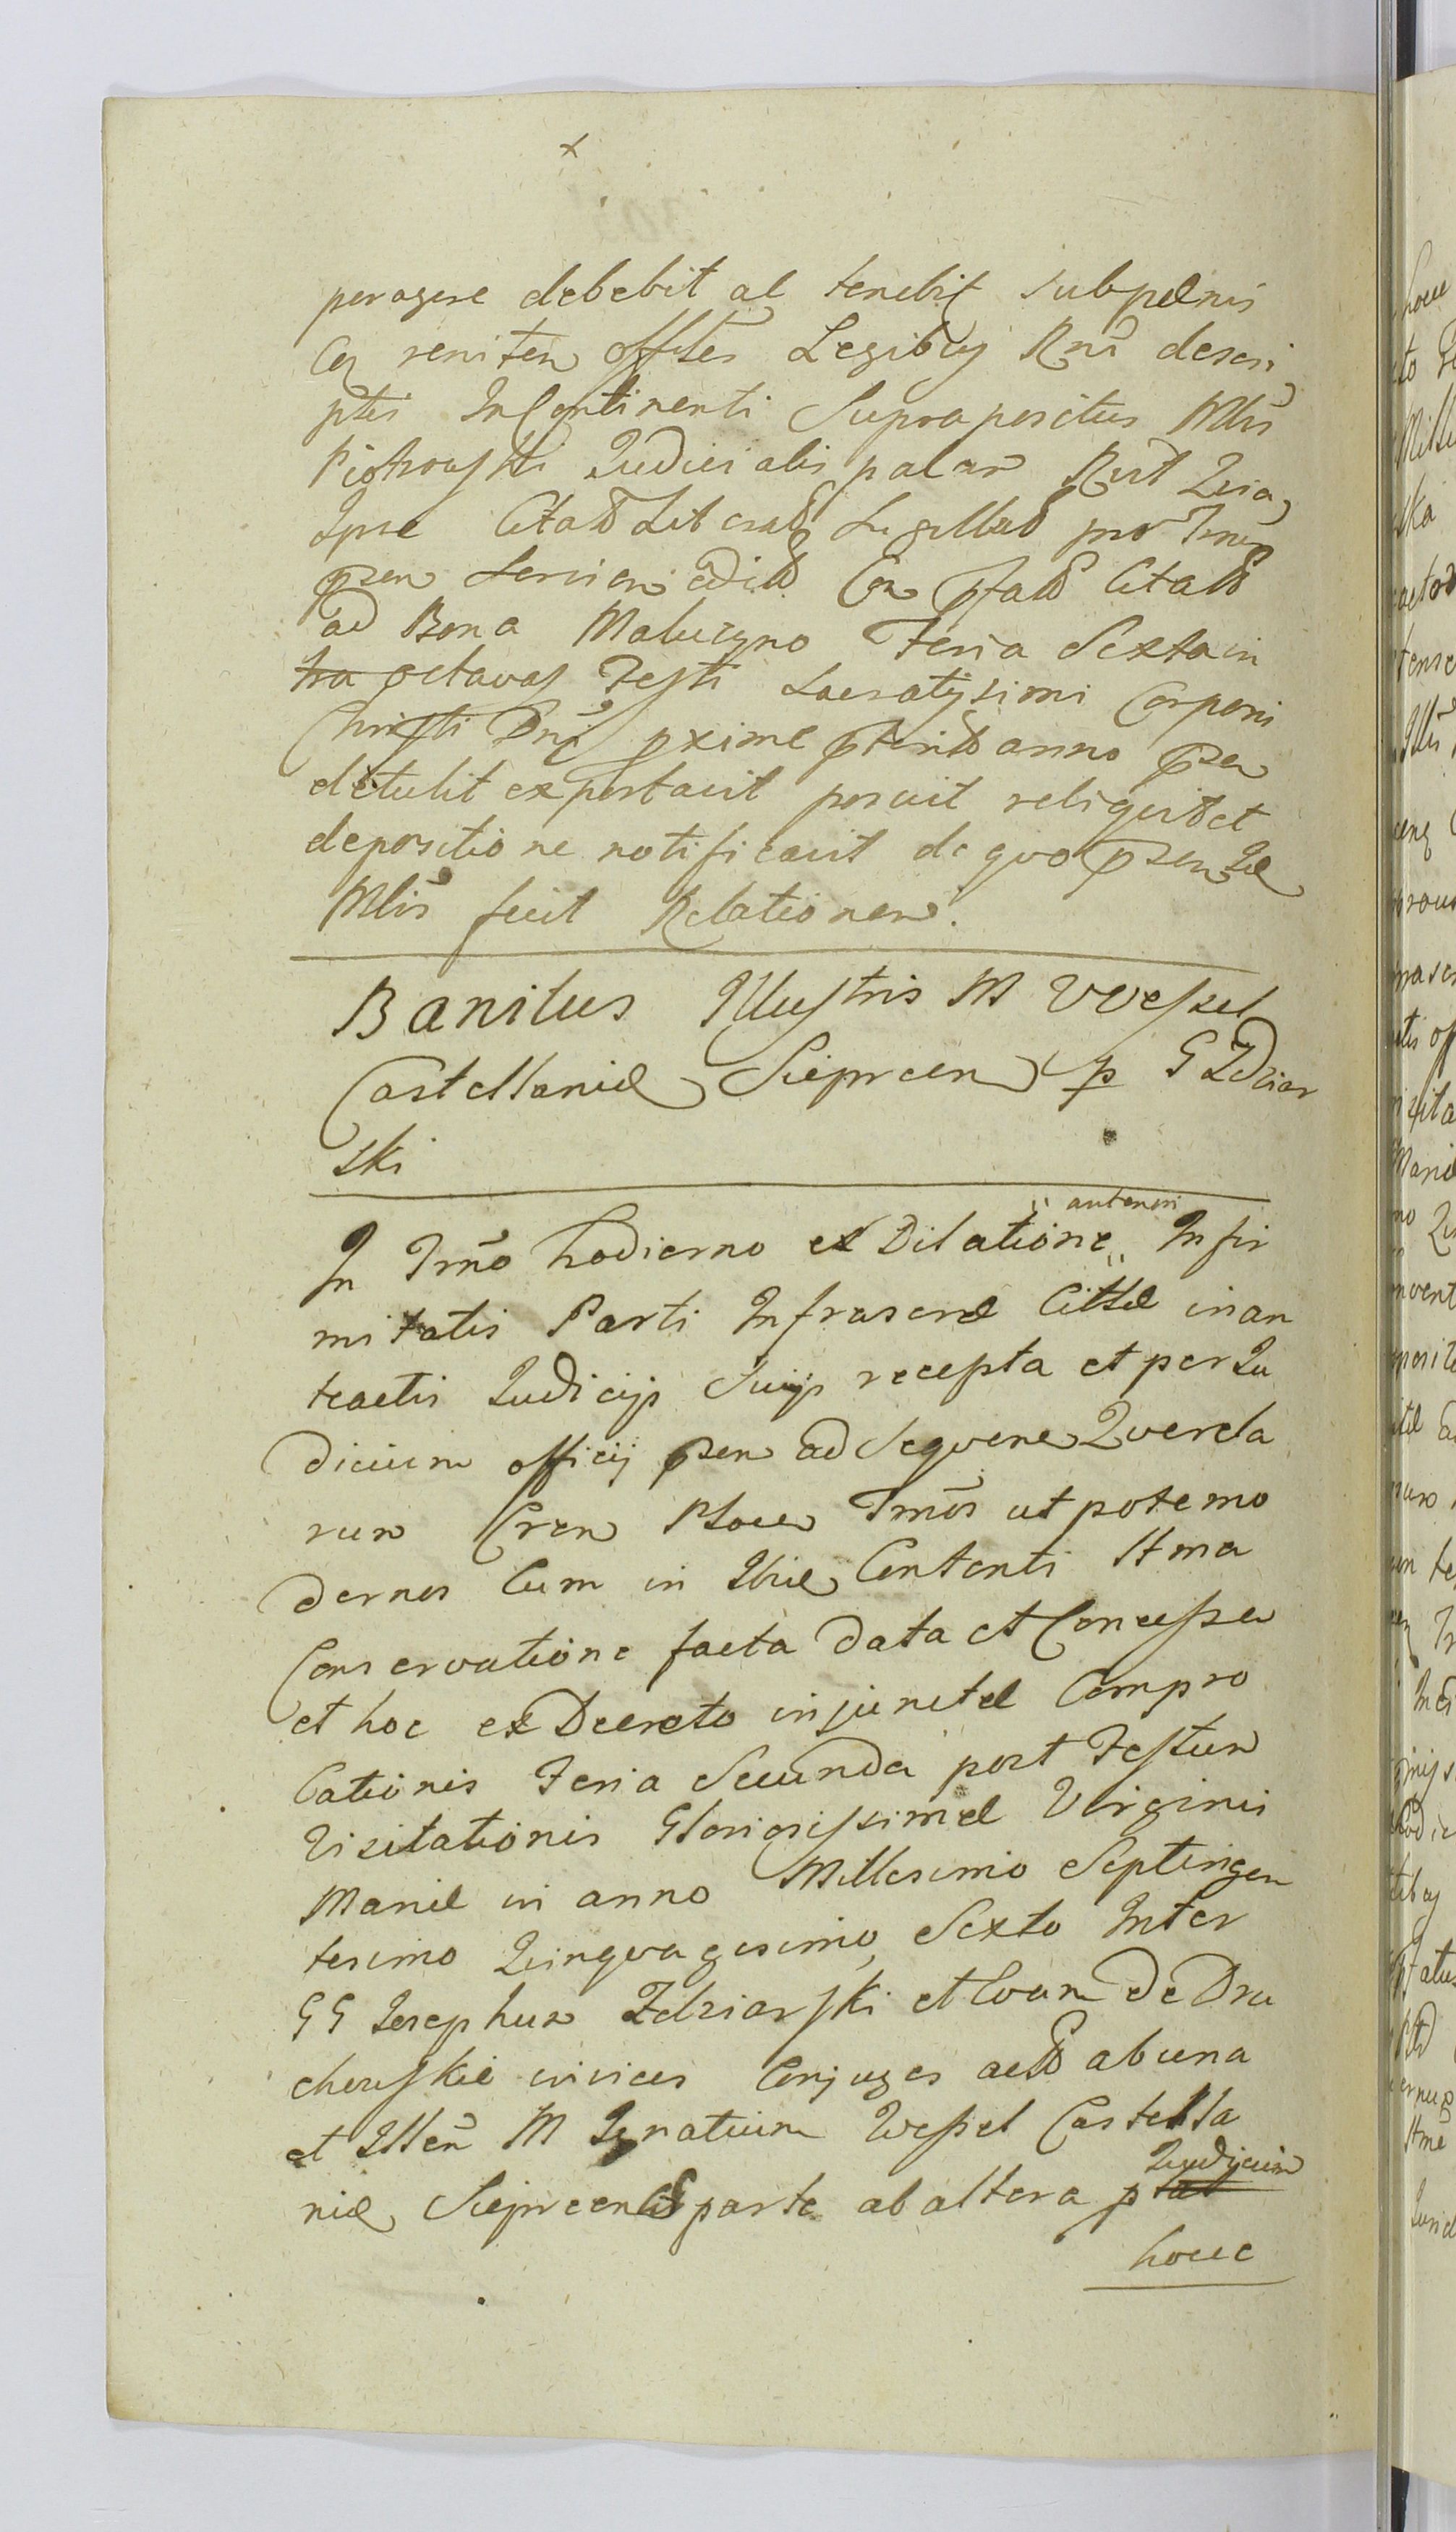 x
peragere debebit al tenebit subpænis
Cq reniten offltes Legibus Rni descri
ptis InContinenti Supra positus Mlis
Piotrowski Judicialis palam Quia
Ipse Citatt Literatt Sigillatt pro Trmo
psen Servien editt Con pfatt Citatt
ad Bona Maluszyno Feria Sexta in
tra octavas Festi Sacratissimi Corporis
Christi Dni pxime pteritt anno psen
detulit exportavit posuit reliquit et
depositione notificavit de quo psen Se
Mlis fecit Relationem.
Banitus Illustris M Wessel
Castellaniæ Sieprcen p G Zdziar
ski
In Trmo hodierno ex Dilatione anteriori Infir
mitatis Parti Infrascræ Cittæ inan
teactis Judicijs Suijs recepta et per Ju
dicium officij psen ad Seqvene Qverela
rum Cren Plocen Trmos ut pote mo
dernos Cum in Ibiæ Contenti Hma
Conservatione facta data et Concessa
et hoc ex Decreto injunctæ Compro
bationis Feria Secunda post Festum
Visitationis Gloriosissimæ Virginis
Mariæ in anno Millesimo Septingen
tesimo Qinqvagesimo Sexto Inter
GG Josephum Zdziarski et Evam De Dru
chowskie invicem Conjuges actt ab una
et Illem M Ignatium Wessel Castella
niæ Sieprcensis parte ab altera Judicium
hocce